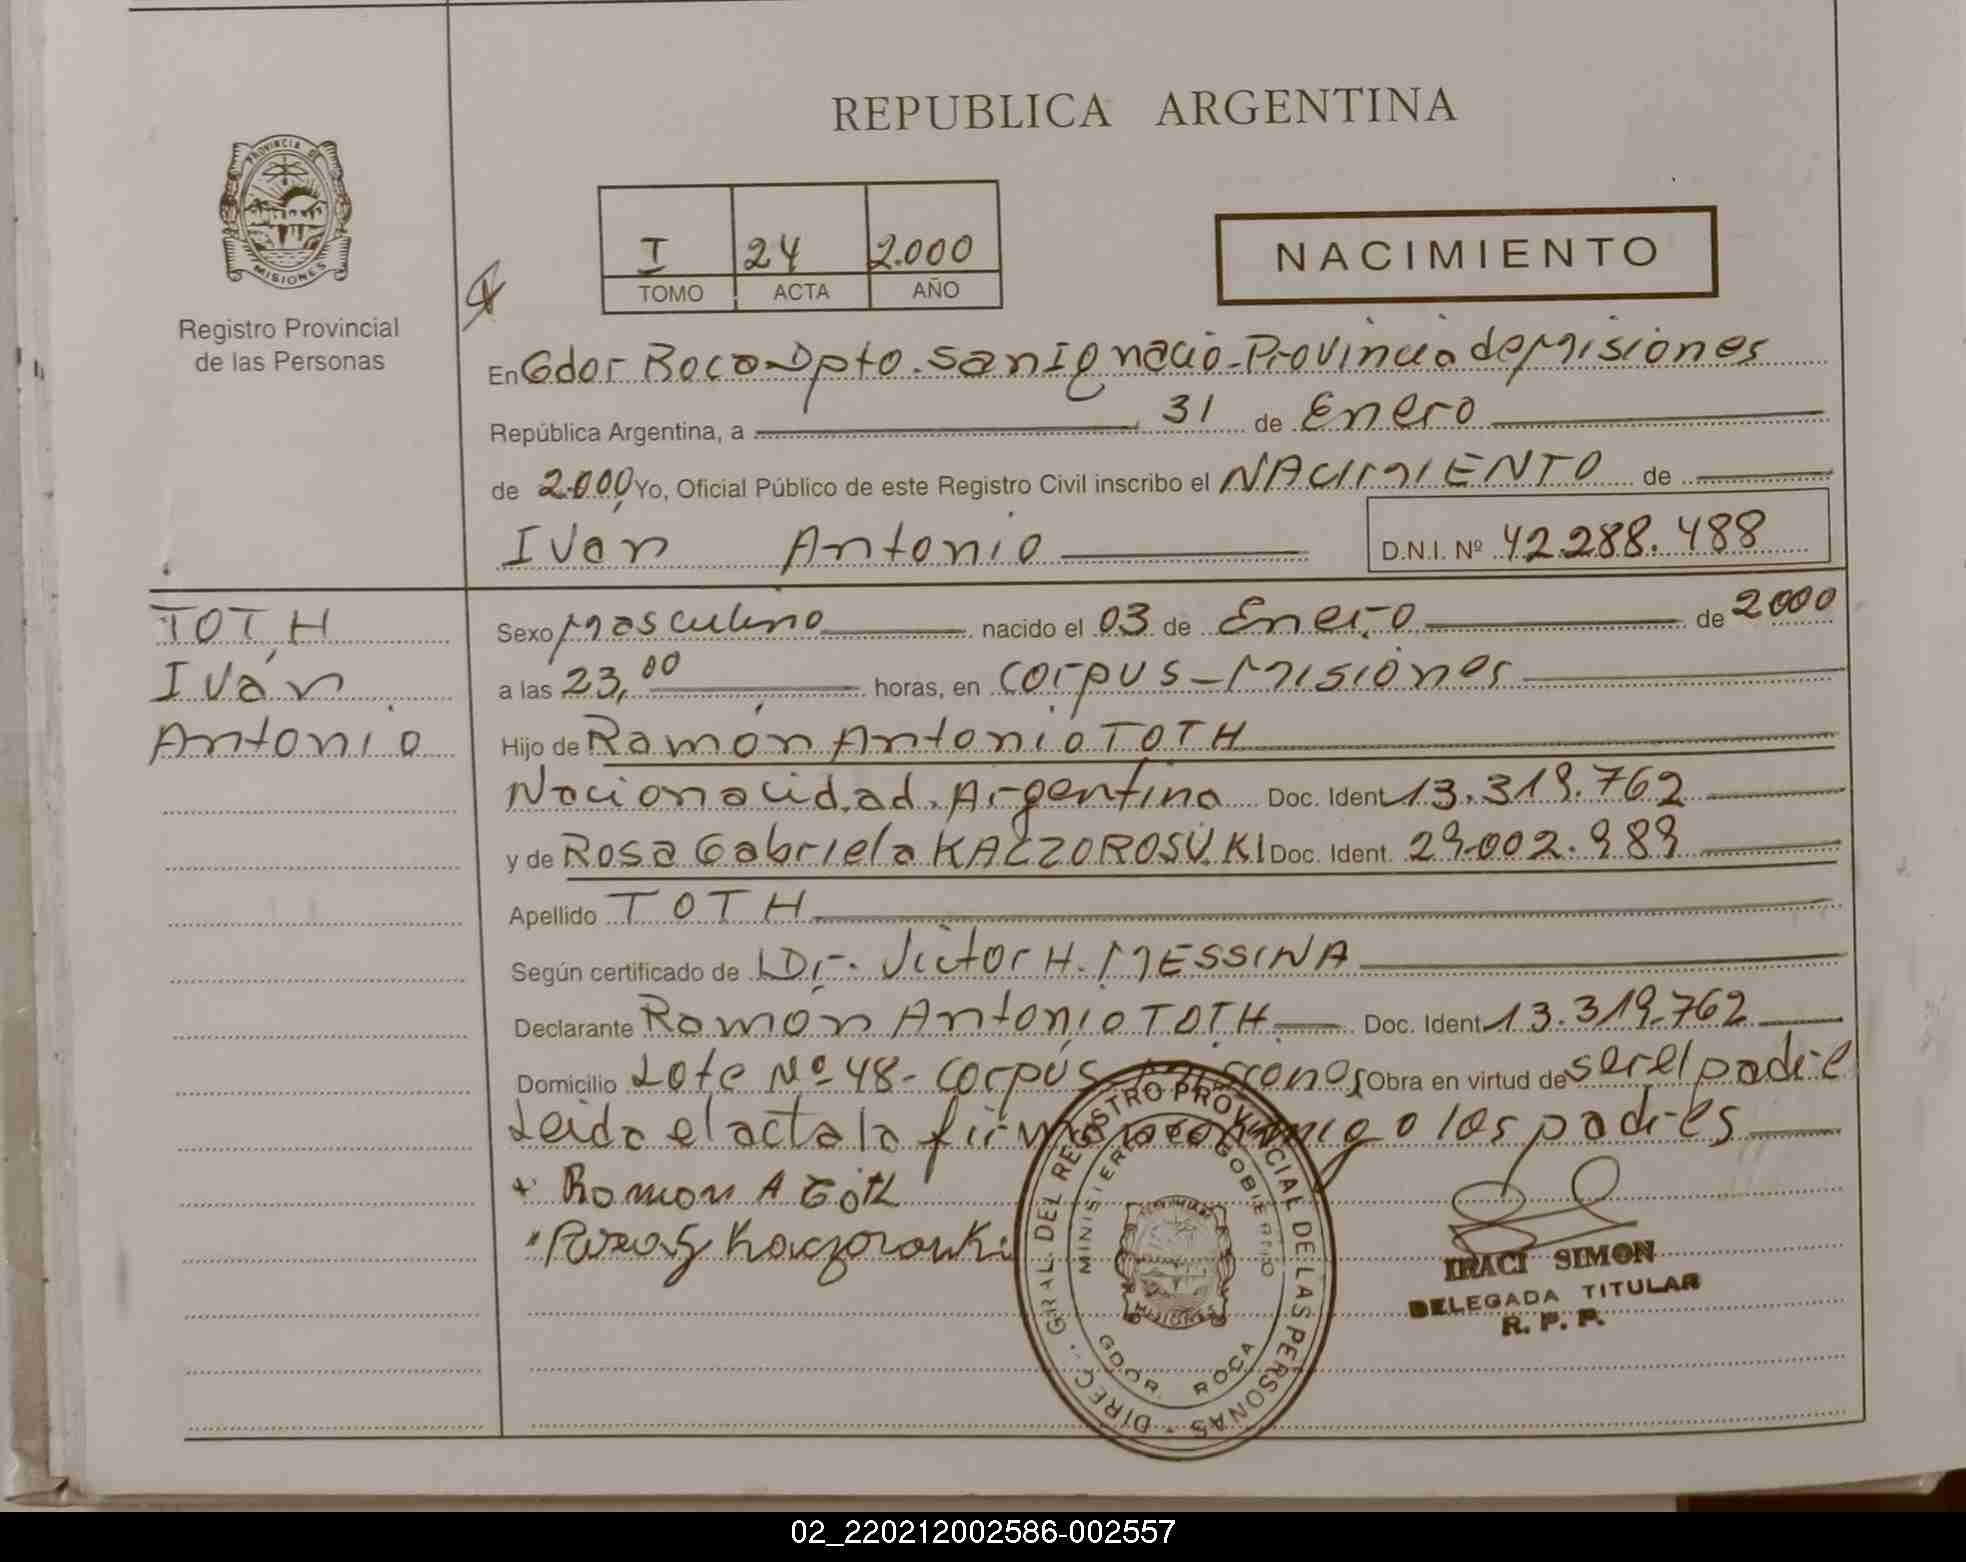 REPUBLICA ARGENTINA
PROVINCIA DE
MISIONES
Registro Provincial
de las Personas
I 24 2.000
TOMO ACTA AÑO
NACIMIENTO
En Gdor Roca Dpto. San Ignacio - Provincia de Misiones
República Argentina, a 31 de Enero
de 2.000 Yo, Oficial Público de este Registro Civil inscribo el NACIMIENTO de
Iván Antonio
D.N.I. Nº 42.288.488
TOTH
Iván
Antonio
Sexo Masculino nacido el 03 de Enero de 2000
a las 23,00 horas, en Corpus - Misiones
Hijo de Ramón Antonio TOTH
Nacionalidad Argentina Doc. Ident. 13.319.762
y de Rosa Gabriela KACZOROSUKI Doc. Ident. 29.002.989
Apellido TOTH
Según certificado de Dr. Victor H. MESSINA
Declarante Ramón Antonio TOTH Doc. Ident. 13.319.762
Domicilio Lote Nº 48 - Corpus - Misiones Obra en virtud de ser el padre
Leida el acta la firman conmigo los padres
Ramon A Toth
Rosa G Kaczorouki
DIREC. GRAL. DEL REGISTRO PROVINCIAL DE LAS PERSONAS
MINISTERIO GOBIERNO
MISIONES
GDOR. ROCA
IRACI SIMON
DELEGADA TITULAR
R. P. P.
02_220212002586-002557